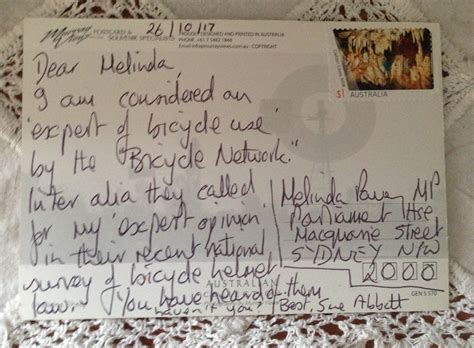 26/10/17
POSTCARD & SOUVENIR SPECIALISTS
DESIGNED AND PRINTED IN AUSTRALIA
COPYRIGHT
$1 AUSTRALIA
Dear Melinda,
I am considered an
'expert of bicycle use'
by the "Bicycle Network."
Inter alia they called
for my 'expert opinion'
in their recent national
survey of bicycle helmet
law. You have heard of them
haven't you? Best, Sue Abbott
Melinda Pavey MP
Parliament Hse
Macquarie Street
SYDNEY NSW
2000
AUSTRALIAN
GENS 570